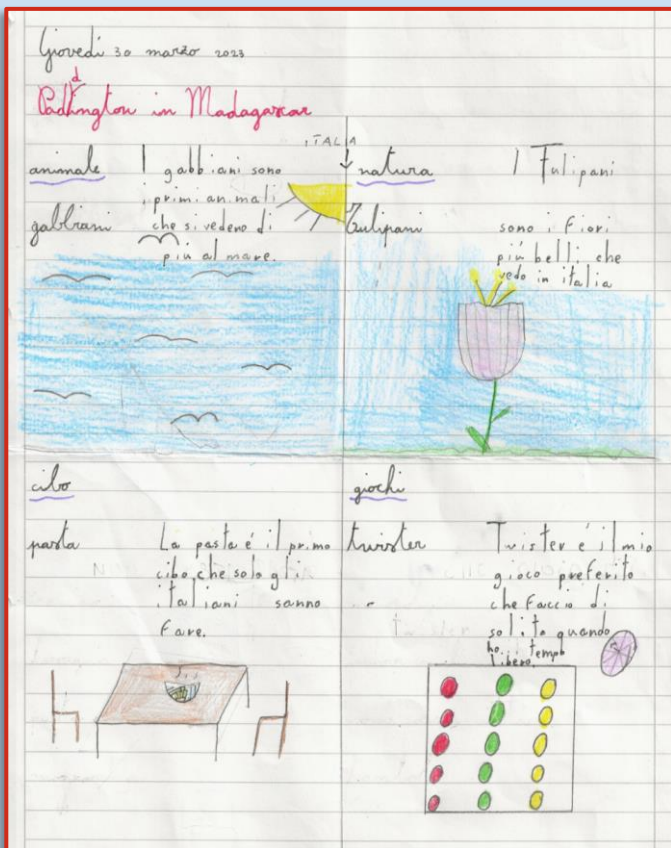 Giovedì 30 marzo 2023
Paddington in Madagascar
ITALIA
animale
I gabbiani sono
i primi animali
gabbiani
che si vedeno di
più al mare.
natura
I Tulipani
Tulipani
sono i Fiori
più belli che
vedo in italia
cibo
pasta
La pasta é il primo
cibo che solo gli
italiani sanno
fare.
giochi
twister
Twister é il mio
gioco preferito
che faccio di
solito quando
ho i tempo
libero.